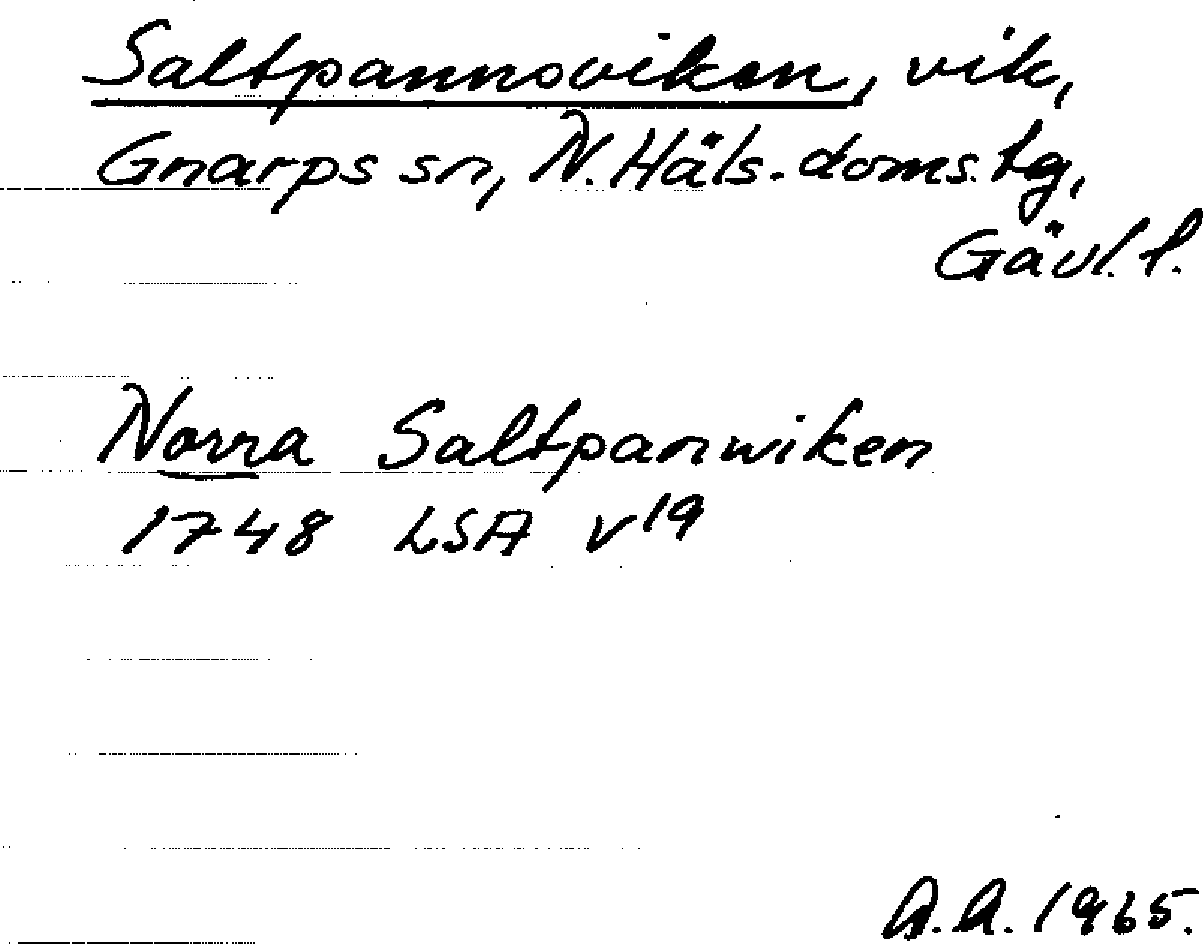 Saltpannsviken, vik,
Gnarps sn, N. Häls. doms. tg,
Gävl. l.
Norra Saltpanwiken
1748 LSA V19
A.A. 1965.